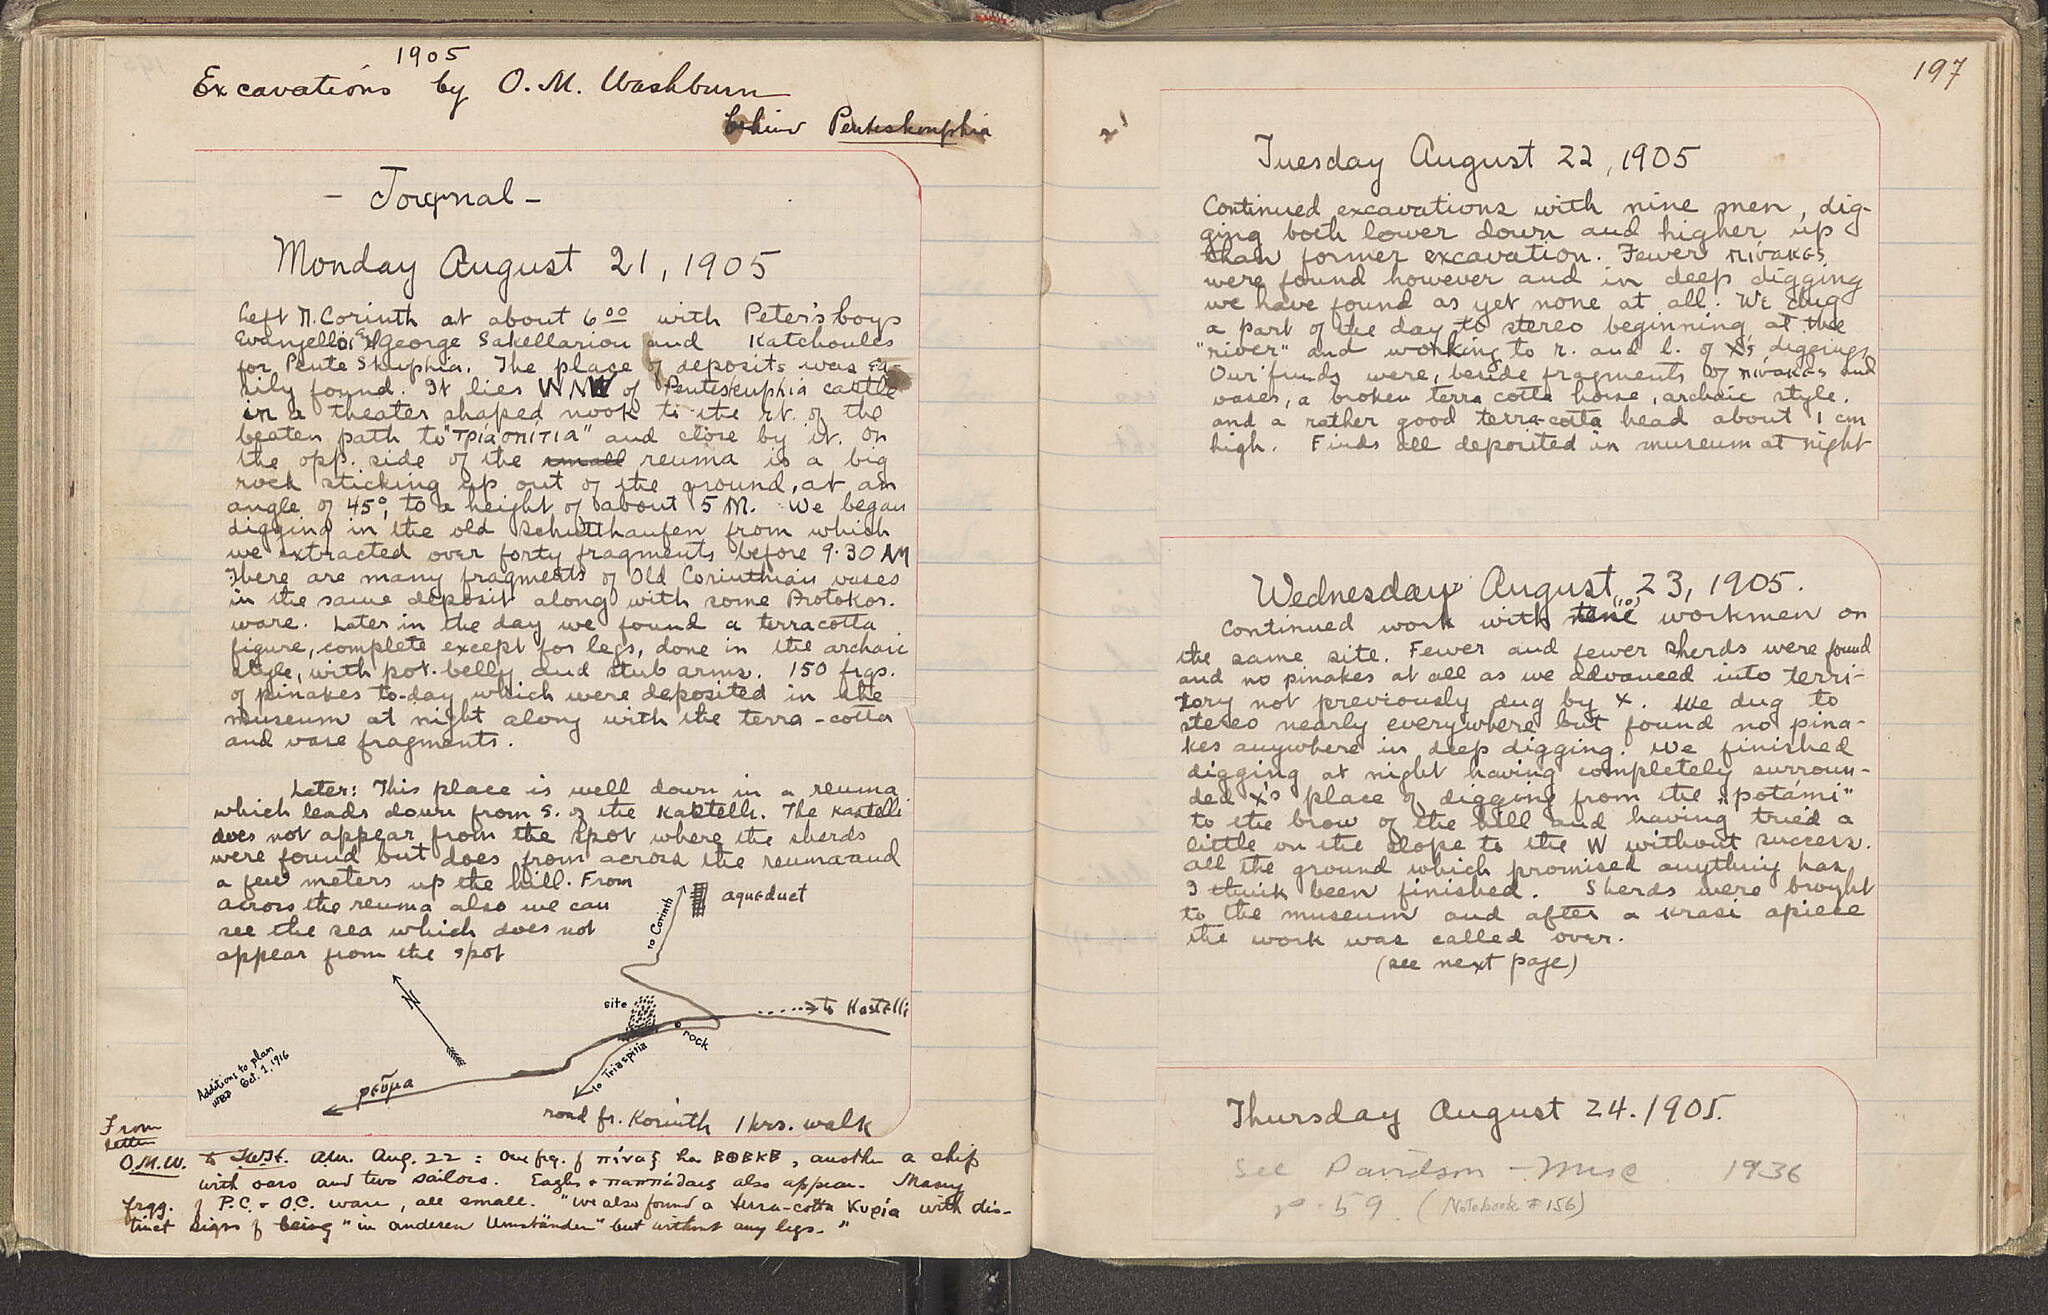 1905
Excavations by O. M. Washburn
behind Penteskouphia
- Journal -
Monday August 21, 1905
Left N. Corinth at about 6⁰⁰ with Peter's boys
George Sakellariou and Katchoules
for Pente Skuphia. The place of deposits was ea-
sily found. It lies WNW of Penteskuphia castle
in a theater shaped nook to the rt. of the
beaten path to "Τριασπίτια" and close by it. On
the opp. side of the small reuma is a big
rock sticking up out of the ground, at an
angle of 45°, to a height of about 5 M. We began
digging in the old Schutthaufen from which
we extracted over forty fragments before 9.30 AM
There are many fragments of Old Corinthian vases
in the same deposit along with some Protokor.
ware. Later in the day we found a terracotta
figure, complete except for legs, done in the archaic
style, with pot-belly and stub arms. 150 frgs.
of pinakes to-day which were deposited in the
museum at night along with the terra-cotta
and vase fragments.
Later: This place is well down in a reuma
which leads down from S. of the Kastelli. The Kastelli
does not appear from the spot where the sherds
were found but does from across the reuma and
a few meters up the hill. From
across the reuma also we can
see the sea which does not
appear from the spot
aqueduct
to Corinth
N
site
to Kastelli
rock
to Triaspitia
Additions to plan
WBD Oct. 1, 1916
ρεῦμα
road fr. Korinth 1 hrs. walk
From
letter
O.M.W. to TWH. Au. Aug. 22: One frg. of πίναξ has , another a ship
with oars and two sailors. Eagles + also appear. Many
frgg. of P.C. + O.C. ware, all small. "We also found a terra-cotta Κυρία with dis-
tinct signs of being "in anderen Umständen" but without any legs."
197
Tuesday August 22, 1905
Continued excavations with nine men, dig-
ging both lower down and higher up
than former excavation. Fewer πίνακες
were found however and in deep digging
we have found as yet none at all. We dug
a part of the day to stereo beginning at the
"river" and working to r. and l. of X's diggings
Our finds were, beside fragments of πίνακες and
vases, a broken terra cotta horse, archaic style,
and a rather good terra-cotta head about 1 cm
high. Finds all deposited in museum at night
Wednesday August 23, 1905.
Continued work with (10) workmen on
the same site. Fewer and fewer sherds were found
and no pinakes at all as we advanced into terri-
tory not previously dug by X. We dug to
stereo nearly everywhere but found no pina-
kes anywhere in deep digging. We finished
digging at night having completely surroun-
ded X's place of digging from the "potámi"
to the brow of the hill and having tried a
little on the slope to the W without success.
All the ground which promised anything has
I think been finished. Sherds were brought
to the museum and after a krasi apiece
the work was called over.
(see next page)
Thursday August 24. 1905.
See Davidson - Misc 1936
p. 59. (Notebook # 156)